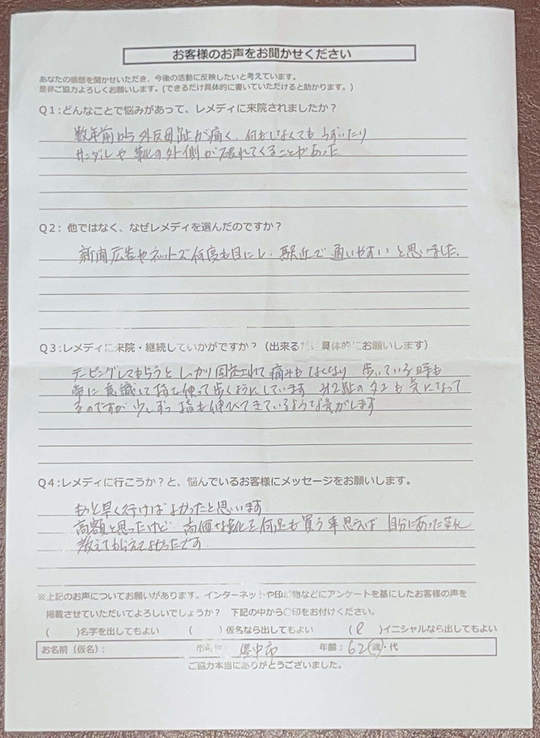 お客様のお声をお聞かせください
あなたの感想を聞かせいただき、今後の活動に反映したいと考えています。
是非ご協力よろしくお願いします。(できるだけ具体的に書いていただけると助かります。)
Q1:どんなことで悩みがあって、レメディに来院されましたか?
数年前から外反母趾が痛く、何もしなくてもうずいたり
サンダルや靴の外側が破れてくることがあった
Q2:他ではなく、なぜレメディを選んだのですか?
新聞広告やネットで何度も目にし、駅近で通いやすいと思いました。
Q3:レメディに来院・継続していかがですか?(出来るだ、具体的にお願いします)
テーピングしてもらうとしっかり固定されて痛みもなくなり 歩いている時も
常に意識して指を使って歩くようにしています
のですが少しずつ指も伸びてきているような気がします
Q4:レメディに行こうか?と、悩んでいるお客様にメッセージをお願いします。
もっと早く行けばよかったと思います
高額と思ったけど 高価な靴を何足も買う事思えば 自分にあった
教えてもらえてよかったです
※上記のお声についてお願いがあります。インターネットや印刷物などにアンケートを基にしたお客様の声を
掲載させていただいてよろしいでしょうか? 下記の中から〇印をお付けください。
( )名字を出してもよい ( )仮名なら出してもよい ( )イニシャルなら出してもよい
お名前(仮名): 豊中市 年齢:62歳・代
ご協力本当にありがとうございました。